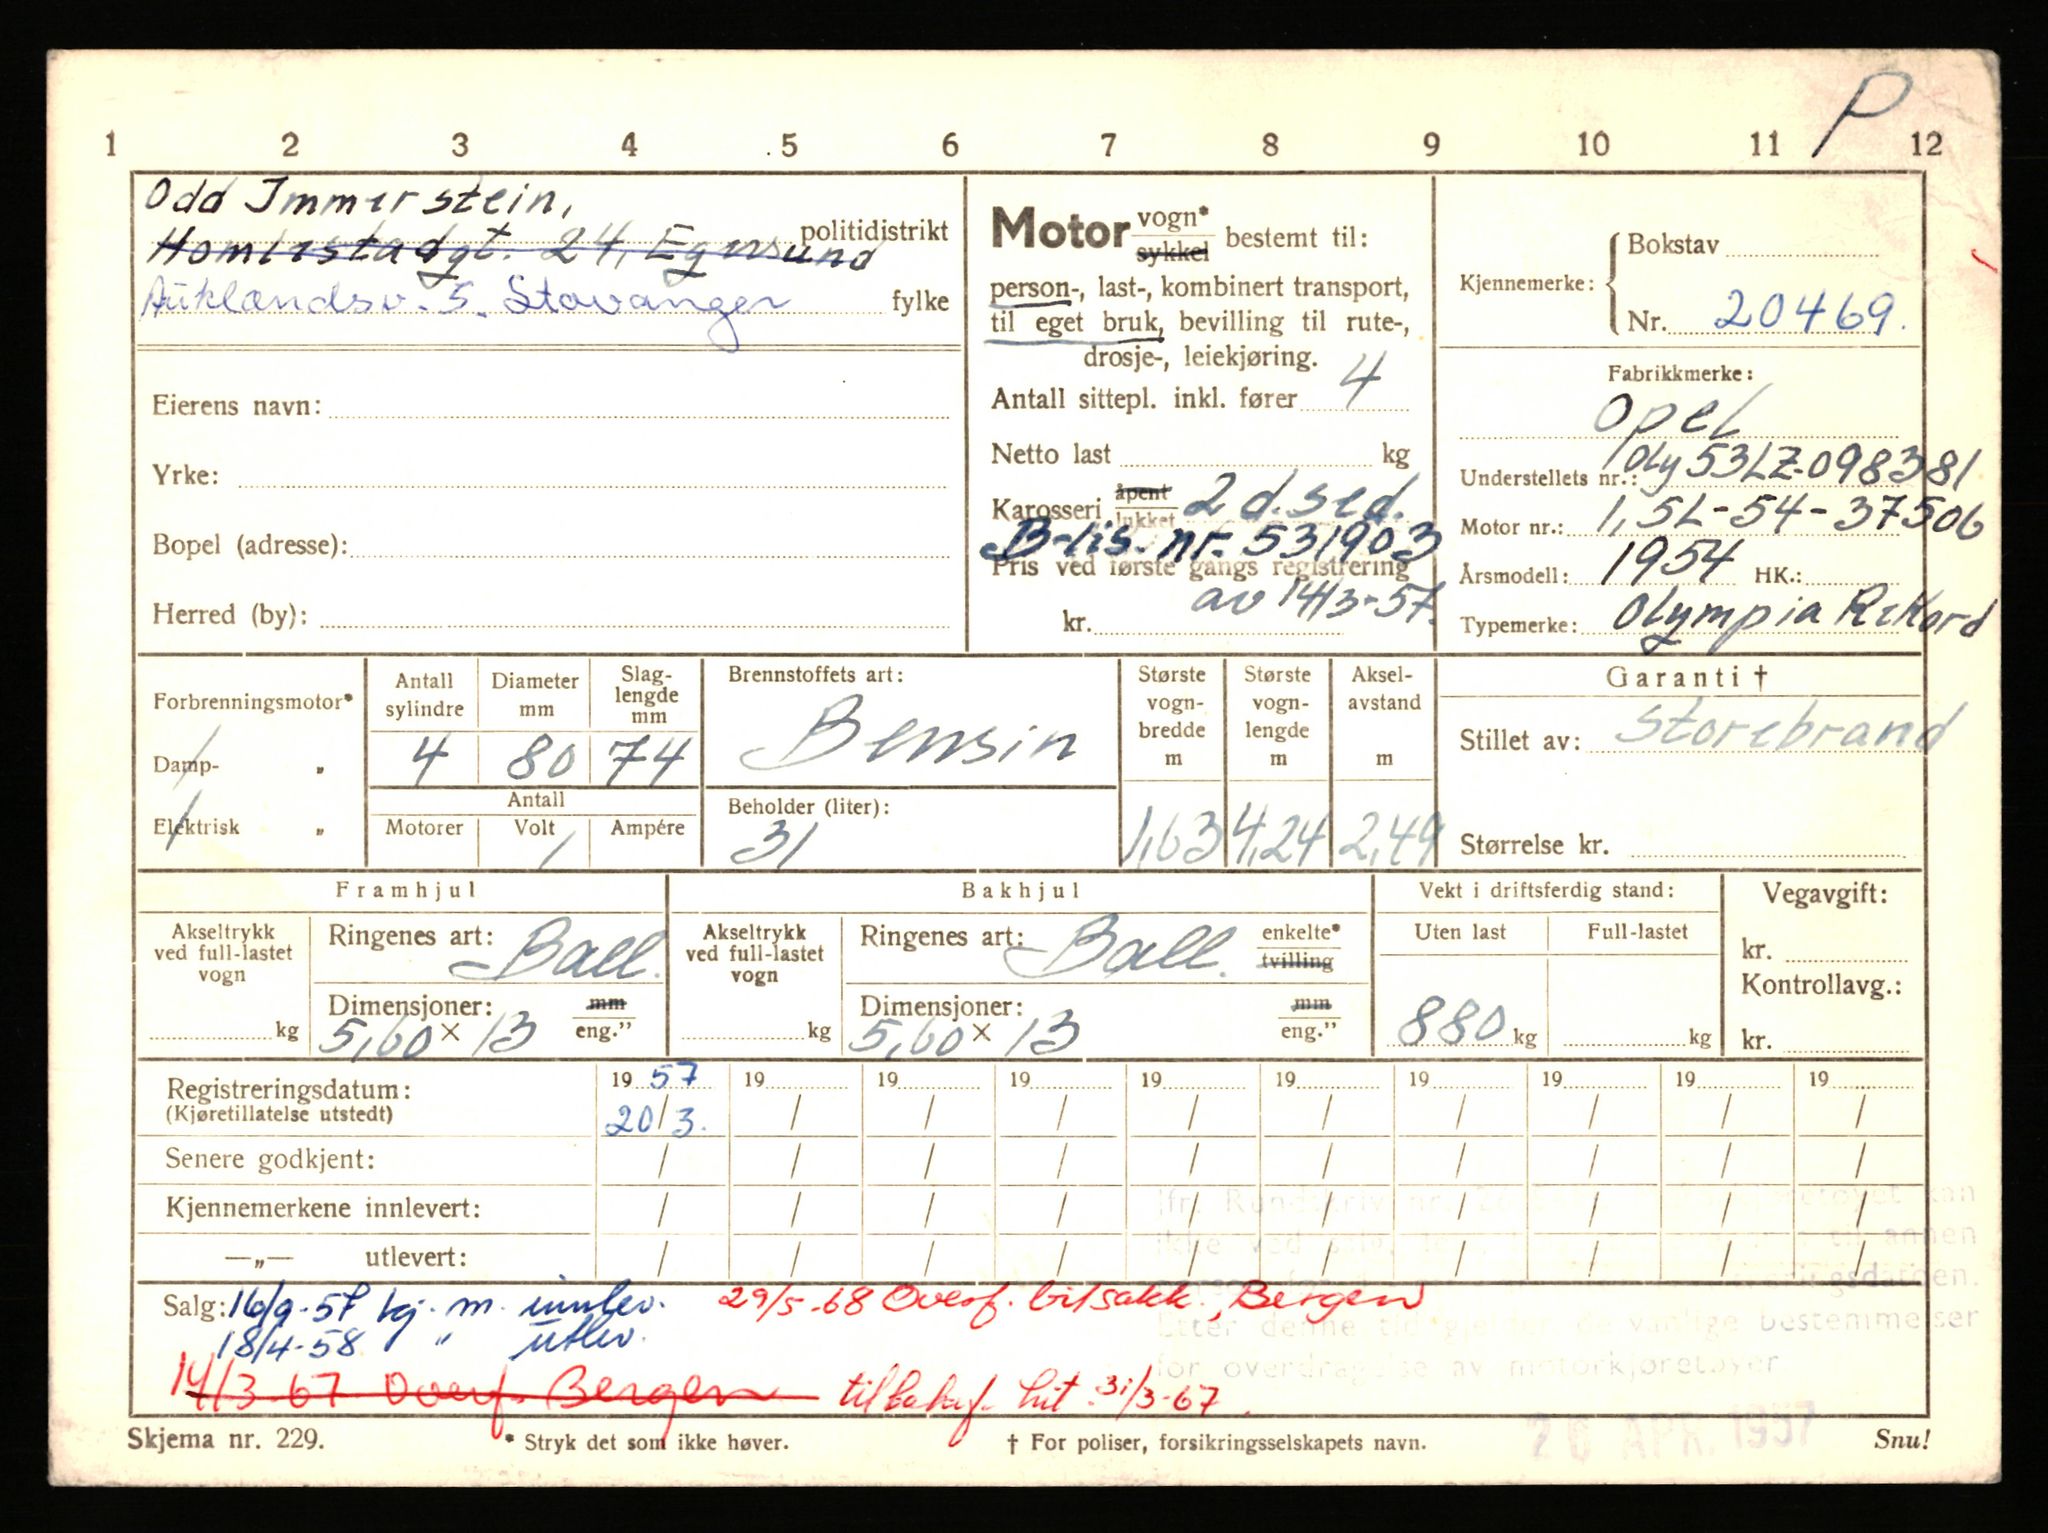 P
1 2 3 4 5 6 7 8 9 10 11 12
Odd Immerstein,
politidistrikt
Homlestadgt. 24, Egersund
Auklandsv. 5. Stavanger fylke
Eierens navn:
Yrke:
Bopel (adresse):
Herred (by):
Motor vogn* sykkel bestemt til:
person-, last-, kombinert transport,
til eget bruk, bevilling til rute-,
drosje-, leiekjøring.
Antall sittepl. inkl. fører 4
Netto last kg
Karosseri åpent lukket 2 d. sed.
B-lis. nr. 531903
Pris ved første gangs registrering
av 14/3-57.
kr.
Kjennemerke: Bokstav
Nr. 20469.
Fabrikkmerke:
Opel
Understellets nr.: Oly 53LZ-098381
Motor nr.: 1,5L-54-37506
Årsmodell: 1954 HK.:
Typemerke: Olympia Rekord
Forbrenningsmotor*
Damp- „
Elektrisk „
Antall sylindre
Diameter mm
Slag-lengde mm
4 80 74
Antall
Motorer Volt Ampére
Brennstoffets art:
Bensin
Beholder (liter):
31
Største vogn-bredde m
Største vogn-lengde m
Aksel-avstand m
1,63 4,24 2,49
Garanti †
Stillet av: Storebrand
Størrelse kr.
Framhjul
Akseltrykk ved full-lastet vogn
kg
Ringenes art: Ball.
Dimensjoner: mm
5,60 x 13 eng."
Bakhjul
Akseltrykk ved full-lastet vogn
kg
Ringenes art: Ball. enkelte* tvilling
Dimensjoner: mm
5,60 x 13 eng."
Vekt i driftsferdig stand:
Uten last Full-lastet
880 kg kg
Vegavgift:
kr.
Kontrollavg.:
kr.
Registreringsdatum: 19 57 19 19 19 19 19 19 19 19 19
(Kjøretillatelse utstedt) 20/3. / / / / / / / / /
Senere godkjent: / / / / / / / / / /
Kjennemerkene innlevert: / / / / / / / / / /
—„— utlevert: / / / / / / / / / /
Salg: 16/9-57 kj. m. innlev. 29/5-68 Overf. bilsakk., Bergen
18/4-58 " utlev.
14/3-67 Overf. Bergen tilbakef. hit. 31/3-67.
ikke ved salg, til annen
Etter denne tid gjelder de vanlige bestemmelser
for overdragelse av motorkjøretøyer
26 APR. 1957
Skjema nr. 229. * Stryk det som ikke høver. † For poliser, forsikringsselskapets navn. Snu!